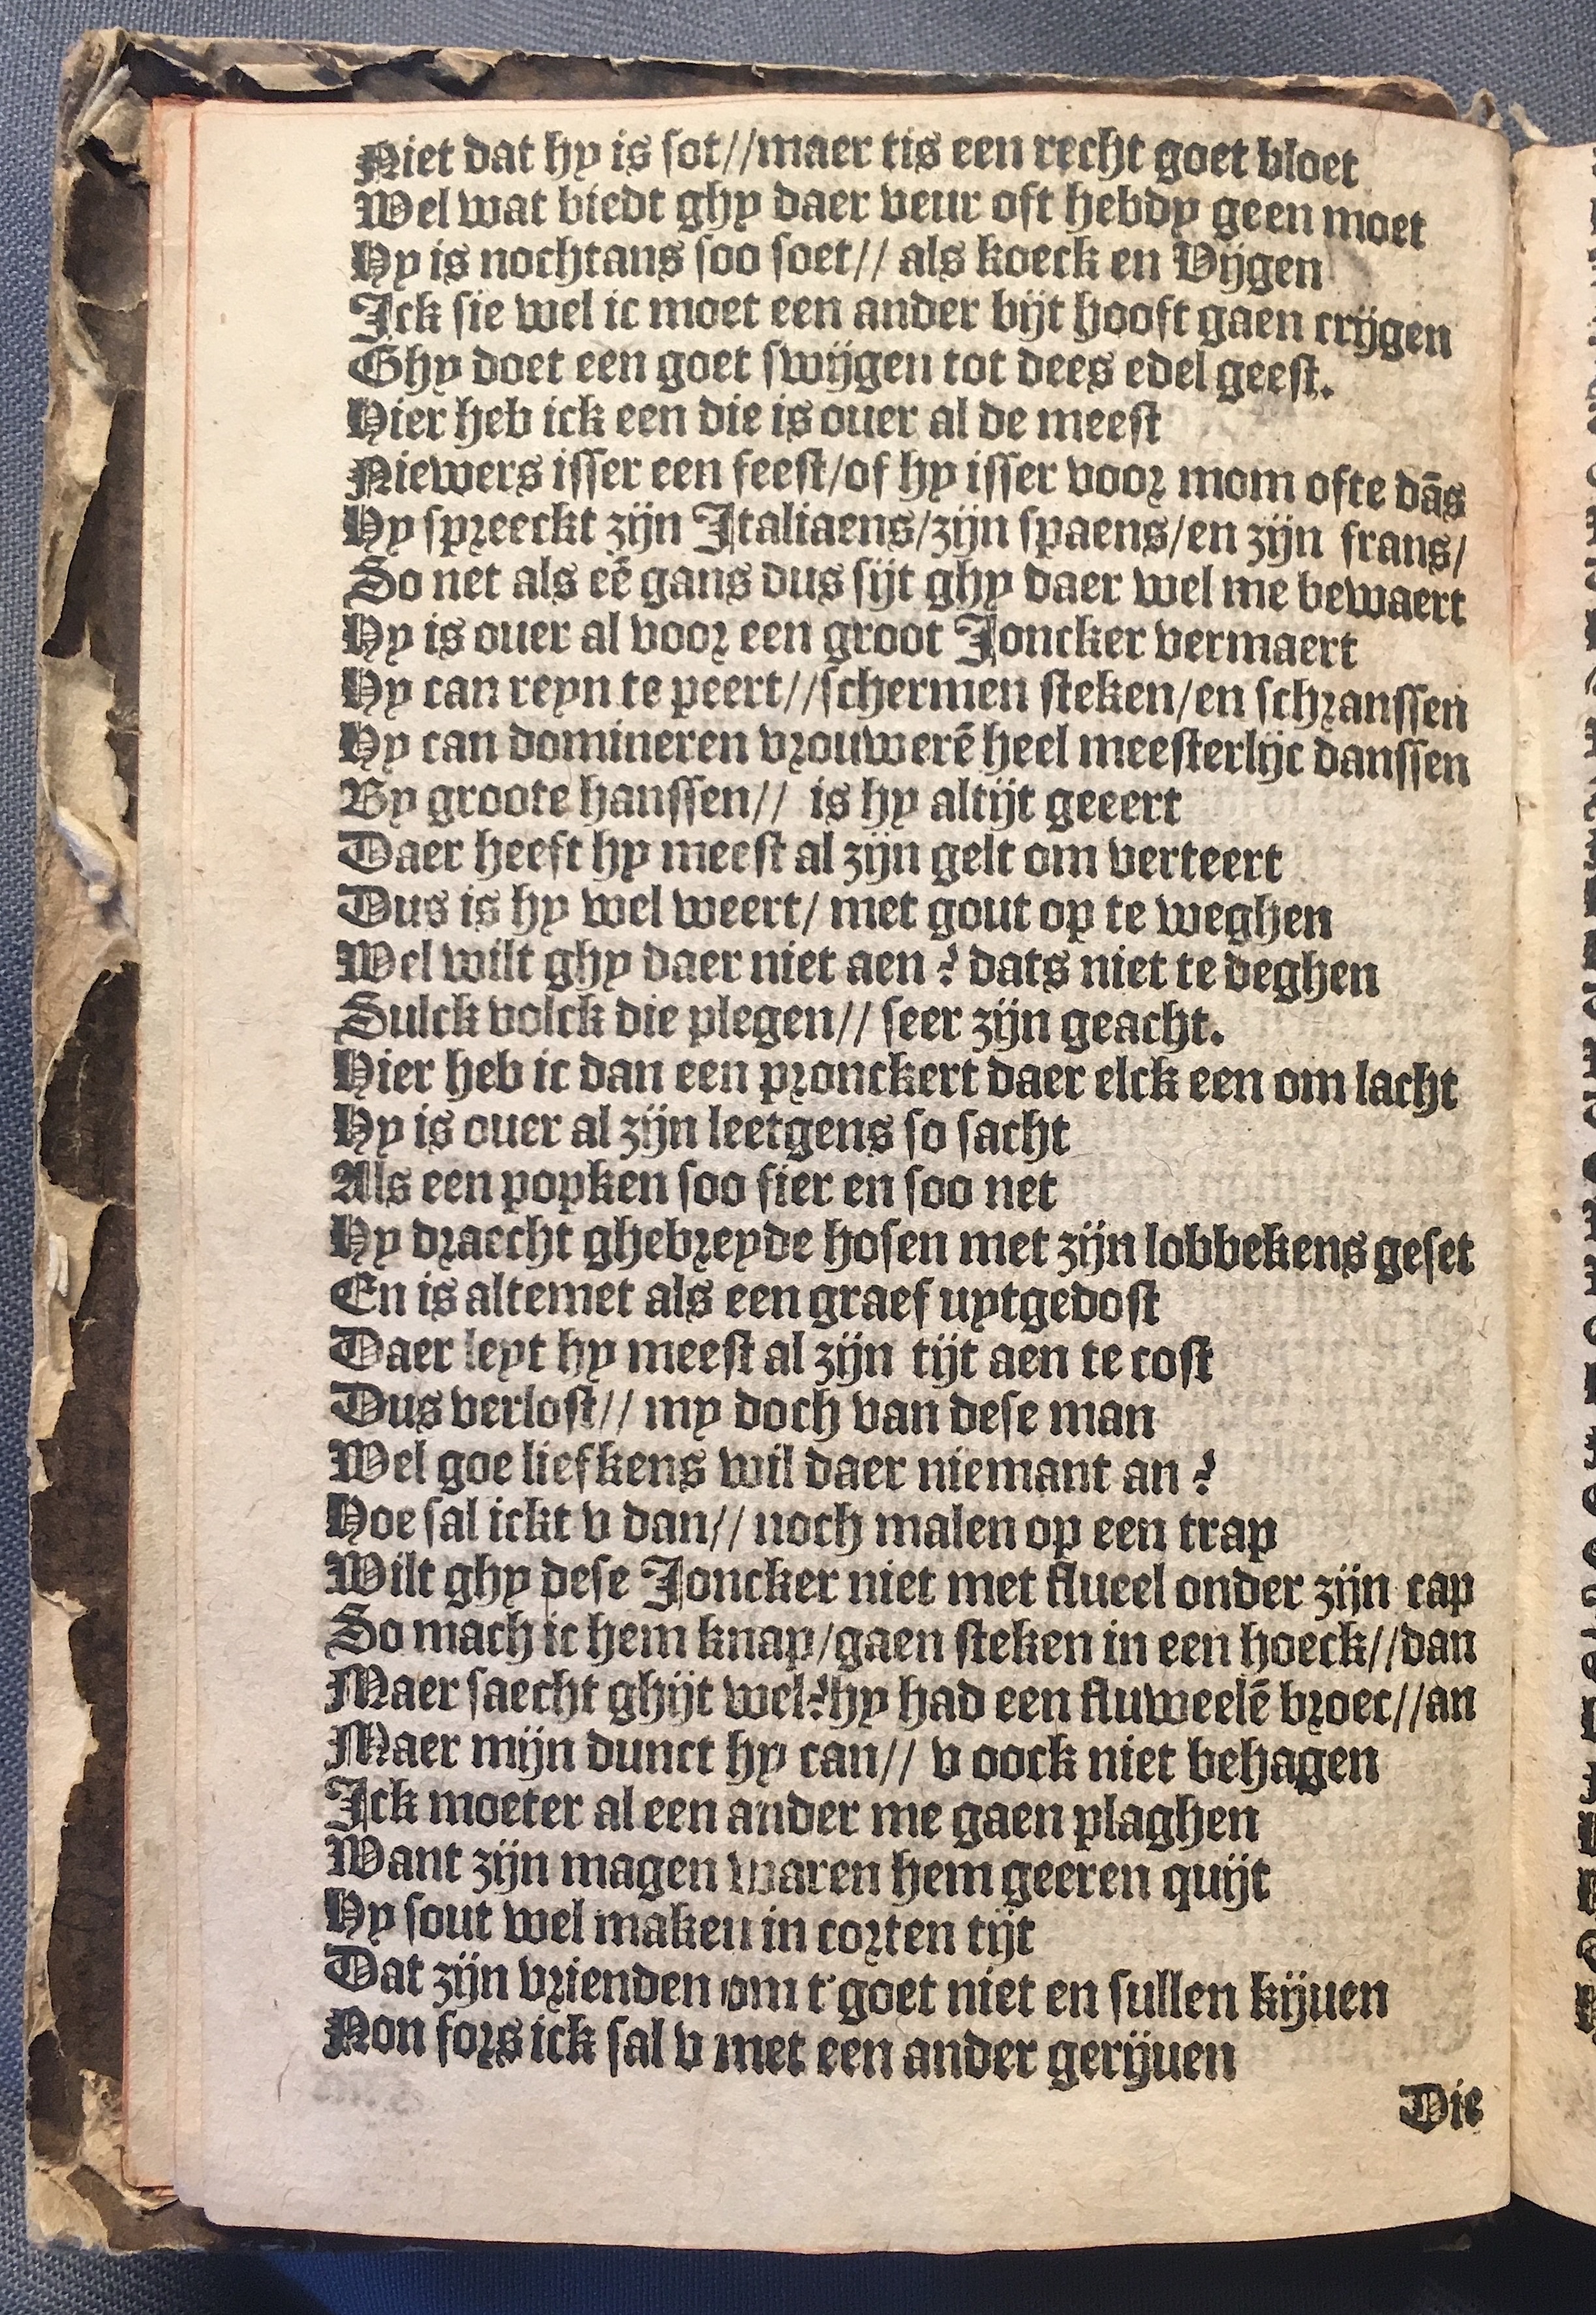 Niet dat hy is sot//maer tis een recht goet bloet
Wel wat biedt ghy daer veur oft hebdy geen moet
Hy is nochtans soo soet// als koeck en Vijgen
Ick sie wel ic moet een ander bijt hooft gaen crijgen
Ghy doet een goet swijgen tot dees edel geest.
Hier heb ick een die is ouer al de meest
Niewers isser een feest/of hy isser voor mom ofte dās
Hy spreeckt zijn Italiaens/zijn spaens/en zijn frans/
So net als eē gans dus sijt ghy daer wel me bewaert
Hy is ouer al voor een groot Joncker vermaert
Hy can reyn te peert//schermen steken/en schranssen
Hy can domineren vrouwerē heel meesterlijc danssen
By groote hanssen// is hy altijt geeert
Daer heeft hy meest al zijn gelt om verteert
Dus is hy wel weert/ met gout op te weghen
Wel wilt ghy daer niet aen? dats niet te deghen
Sulck volck die plegen// seer zijn geacht.
Hier heb ic dan een pronckert daer elck een om lacht
Hy is ouer al zijn leetgens so sacht
Als een popken soo fier en soo net
Hy draecht ghebreyde hosen met zijn lobbekens geset
En is altemet als een graef uytgedost
Daer leyt hy meest al zijn tijt aen te cost
Dus verlost// my doch van dese man
Wel goe liefkens wil daer niemant an?
Hoe sal ickt v dan// noch malen op een trap
Wilt ghy dese Joncker niet met flueel onder zijn cap
So mach ic hem knap/gaen steken in een hoeck//dan
Maer saecht ghijt wel?hy had een fluweelē broec//an
Maer mijn dunct hy can// v oock niet behagen
Ick moeter al een ander me gaen plaghen
Want zijn magen waren hem geeren quijt
Hy sout wel maken in corten tijt
Dat zijn vrienden om t'goet niet en sullen kijuen
Non fors ick sal v met een ander gerijuen
Die